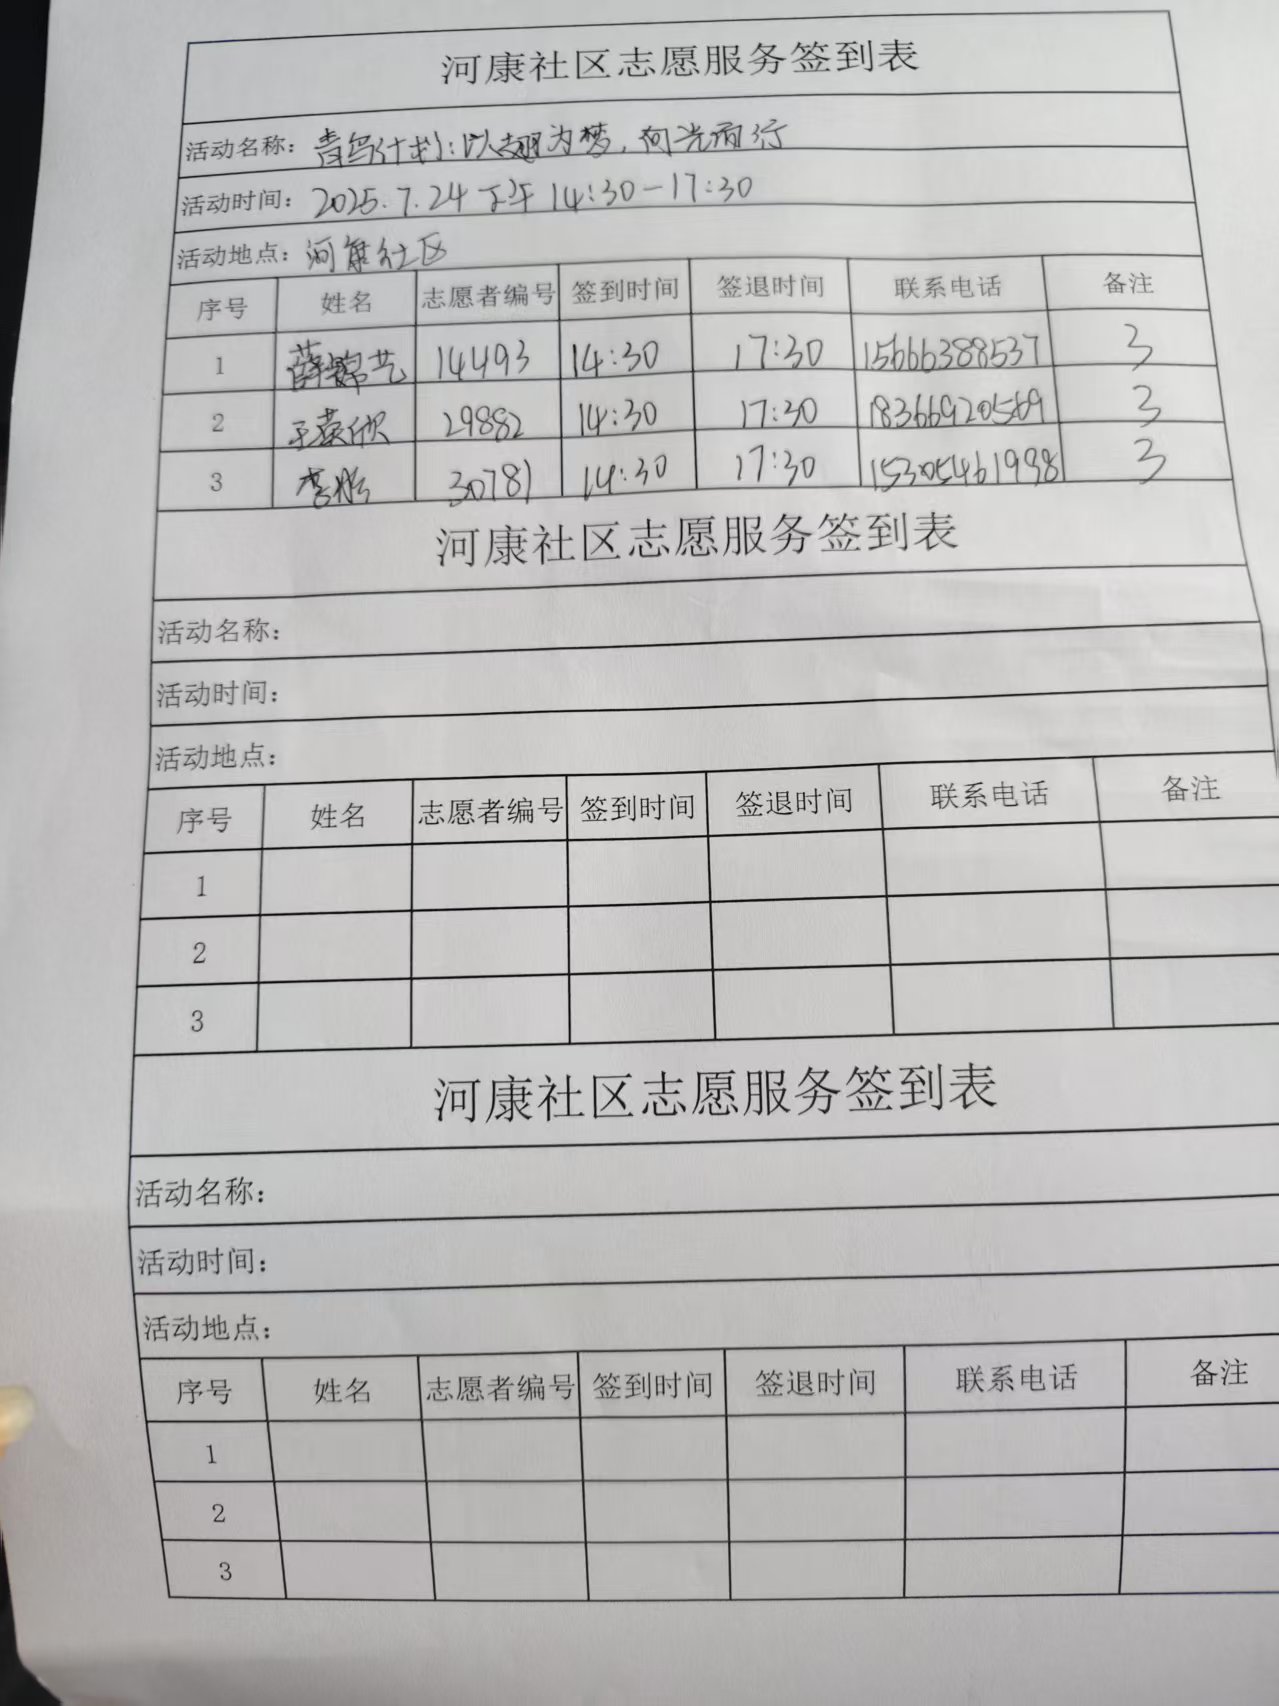 河康社区志愿服务签到表
活动名称：青鸟计划：以翅为梦，向光而行
活动时间：2025.7.24 下午 14:30-17:30
活动地点：河康社区
序号 姓名 志愿者编号 签到时间 签退时间 联系电话 备注
1 薛锦艺 14493 14:30 17:30 15666388537 3
2 王荣欣 29882 14:30 17:30 18366920569 3
3 李 30781 14:30 17:30 15305461998 3
河康社区志愿服务签到表
活动名称：
活动时间：
活动地点：
序号 姓名 志愿者编号 签到时间 签退时间 联系电话 备注
1
2
3
河康社区志愿服务签到表
活动名称：
活动时间：
活动地点：
序号 姓名 志愿者编号 签到时间 签退时间 联系电话 备注
1
2
3